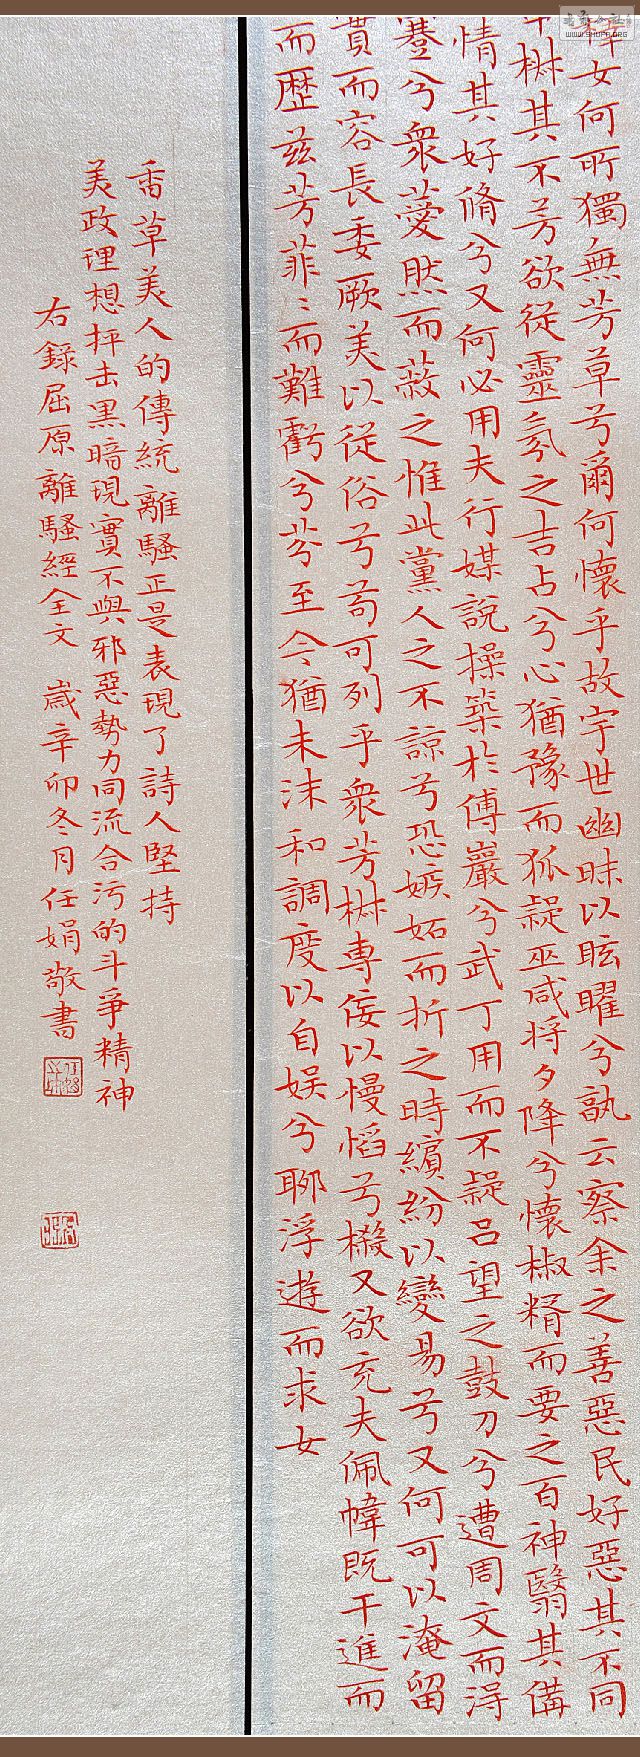 女何所獨無芳草兮爾何懷乎故宇世幽昧以眩曜兮孰云察余之善惡民好惡其不同
椒其不芳欲從靈氛之吉占兮心猶豫而狐疑巫咸將夕降兮懷椒糈而要之百神翳其備
情其好脩兮又何必用夫行媒說操築於傅巖兮武丁用而不疑呂望之鼓刀兮遭周文而得
蹇兮衆薆然而蔽之惟此黨人之不諒兮恐嫉妬而折之時繽紛以變易兮又何可以淹留
實而容長委厥美以從俗兮苟可列乎衆芳椒專佞以慢慆兮樧又欲充夫佩幃既干進而
而歷茲芳菲〻而難虧兮芬至今猶未沬和調度以自娛兮聊浮遊而求女
香草美人的傳統離騷正是表現了詩人堅持
美政理想抨击黑暗現實不與邪惡勢力同流合污的斗爭精神
右錄屈原離騷經全文 歲辛卯冬月任娟敬書
WWW.SHUFA.ORG